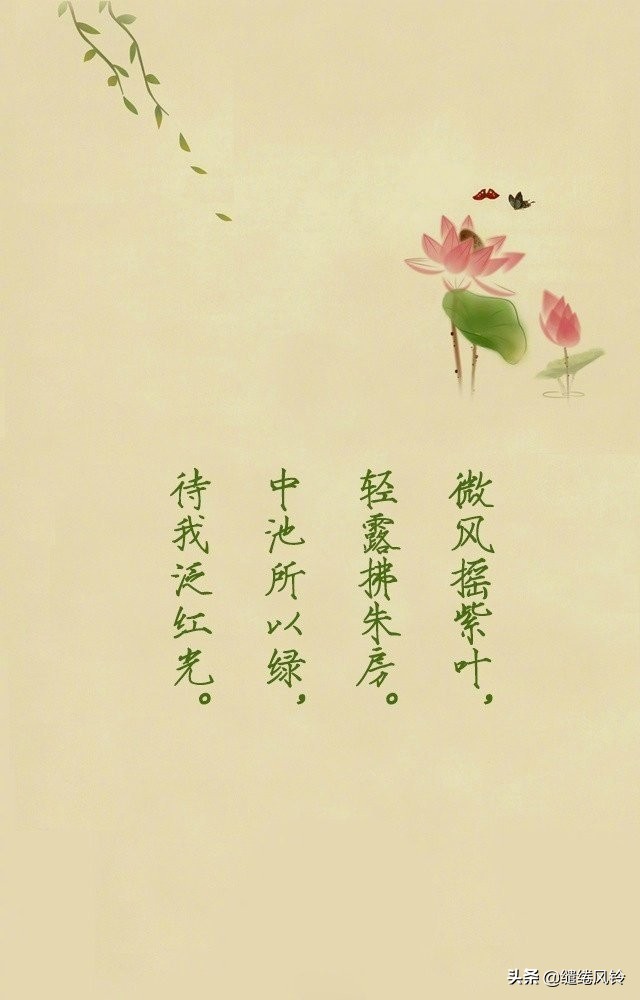 微风摇紫叶，
轻露拂朱房。
中池所以绿，
待我泛红光。
头条 @缱绻风铃